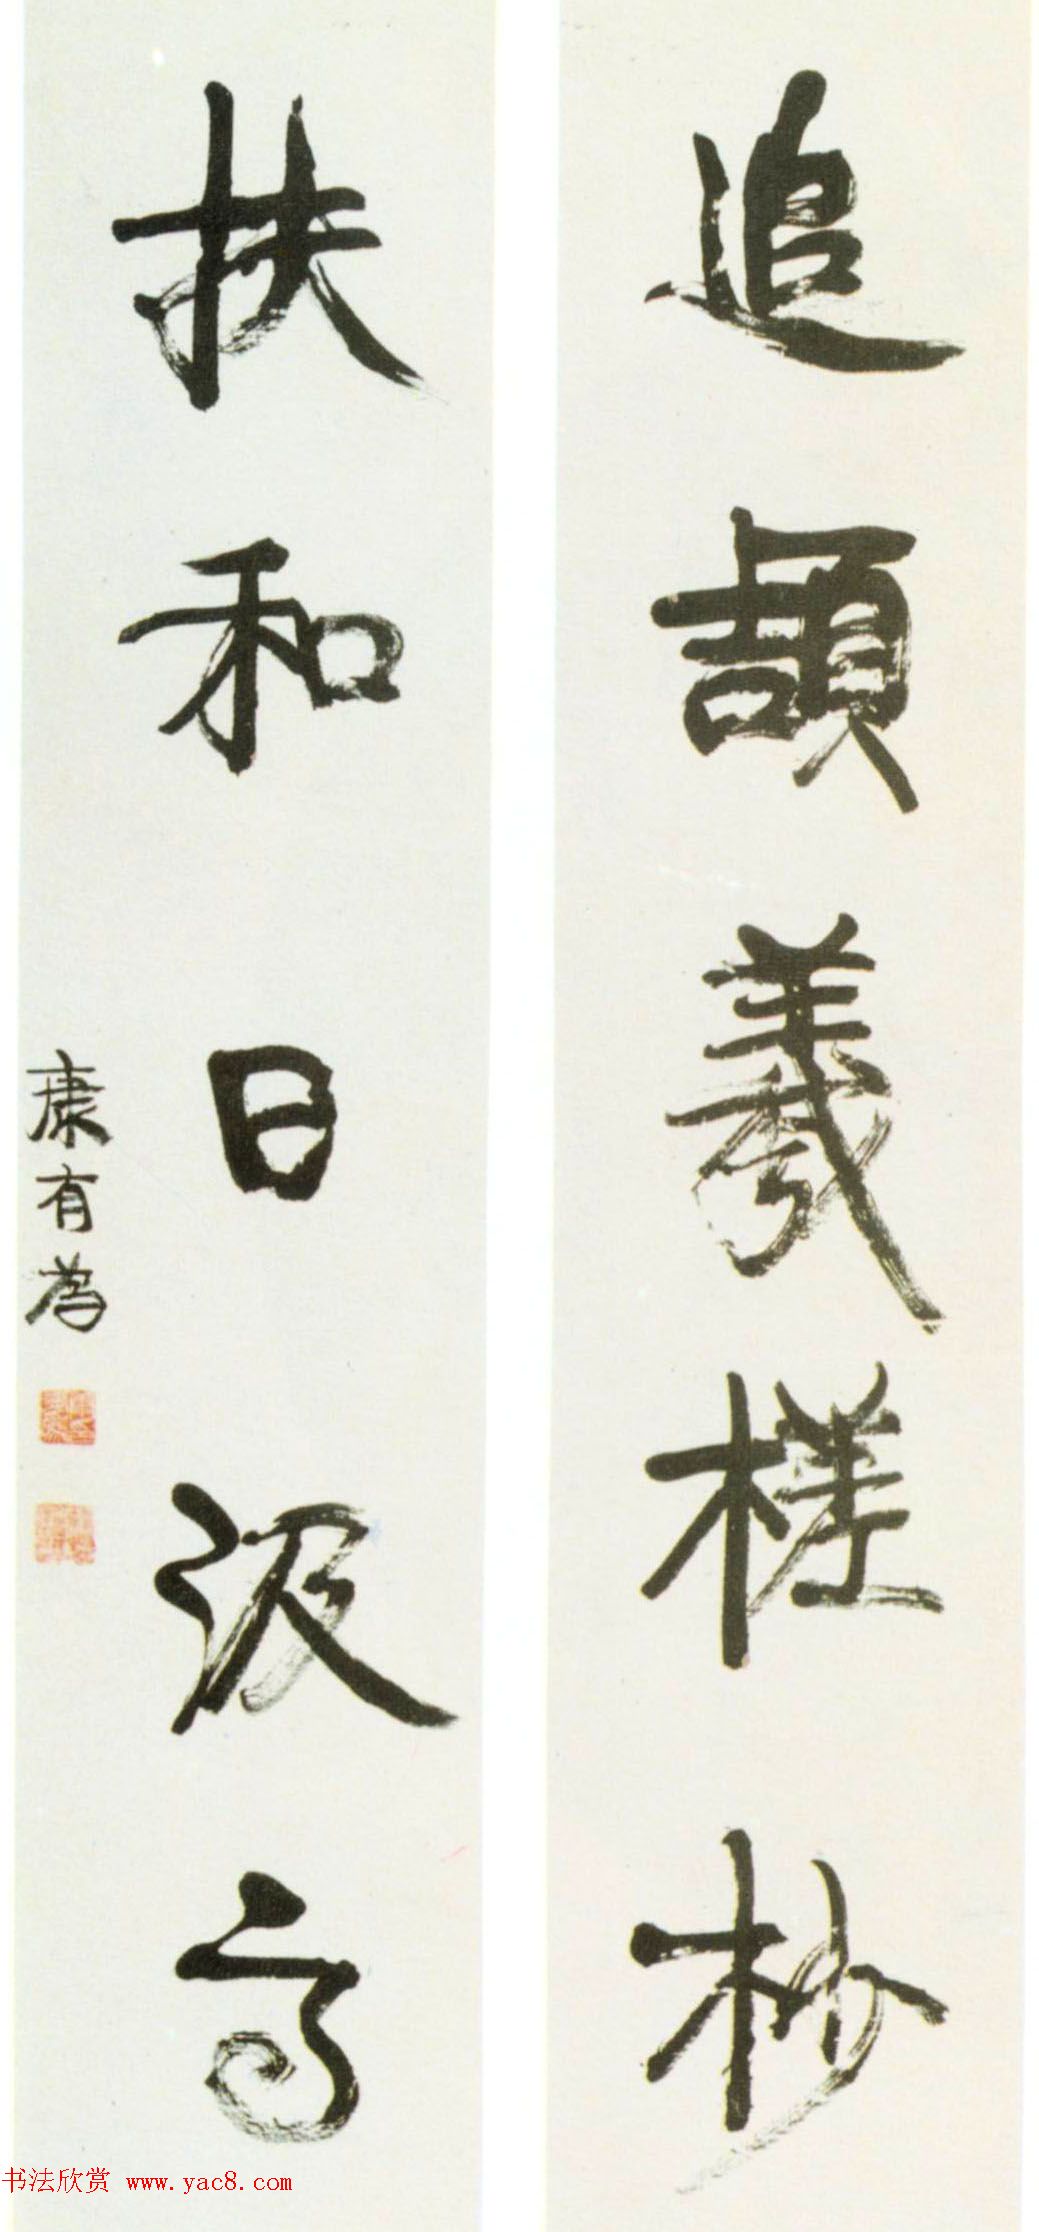 追颉羲槎杪
扶和日汲高
康有為
书法欣赏 www.yac8.com